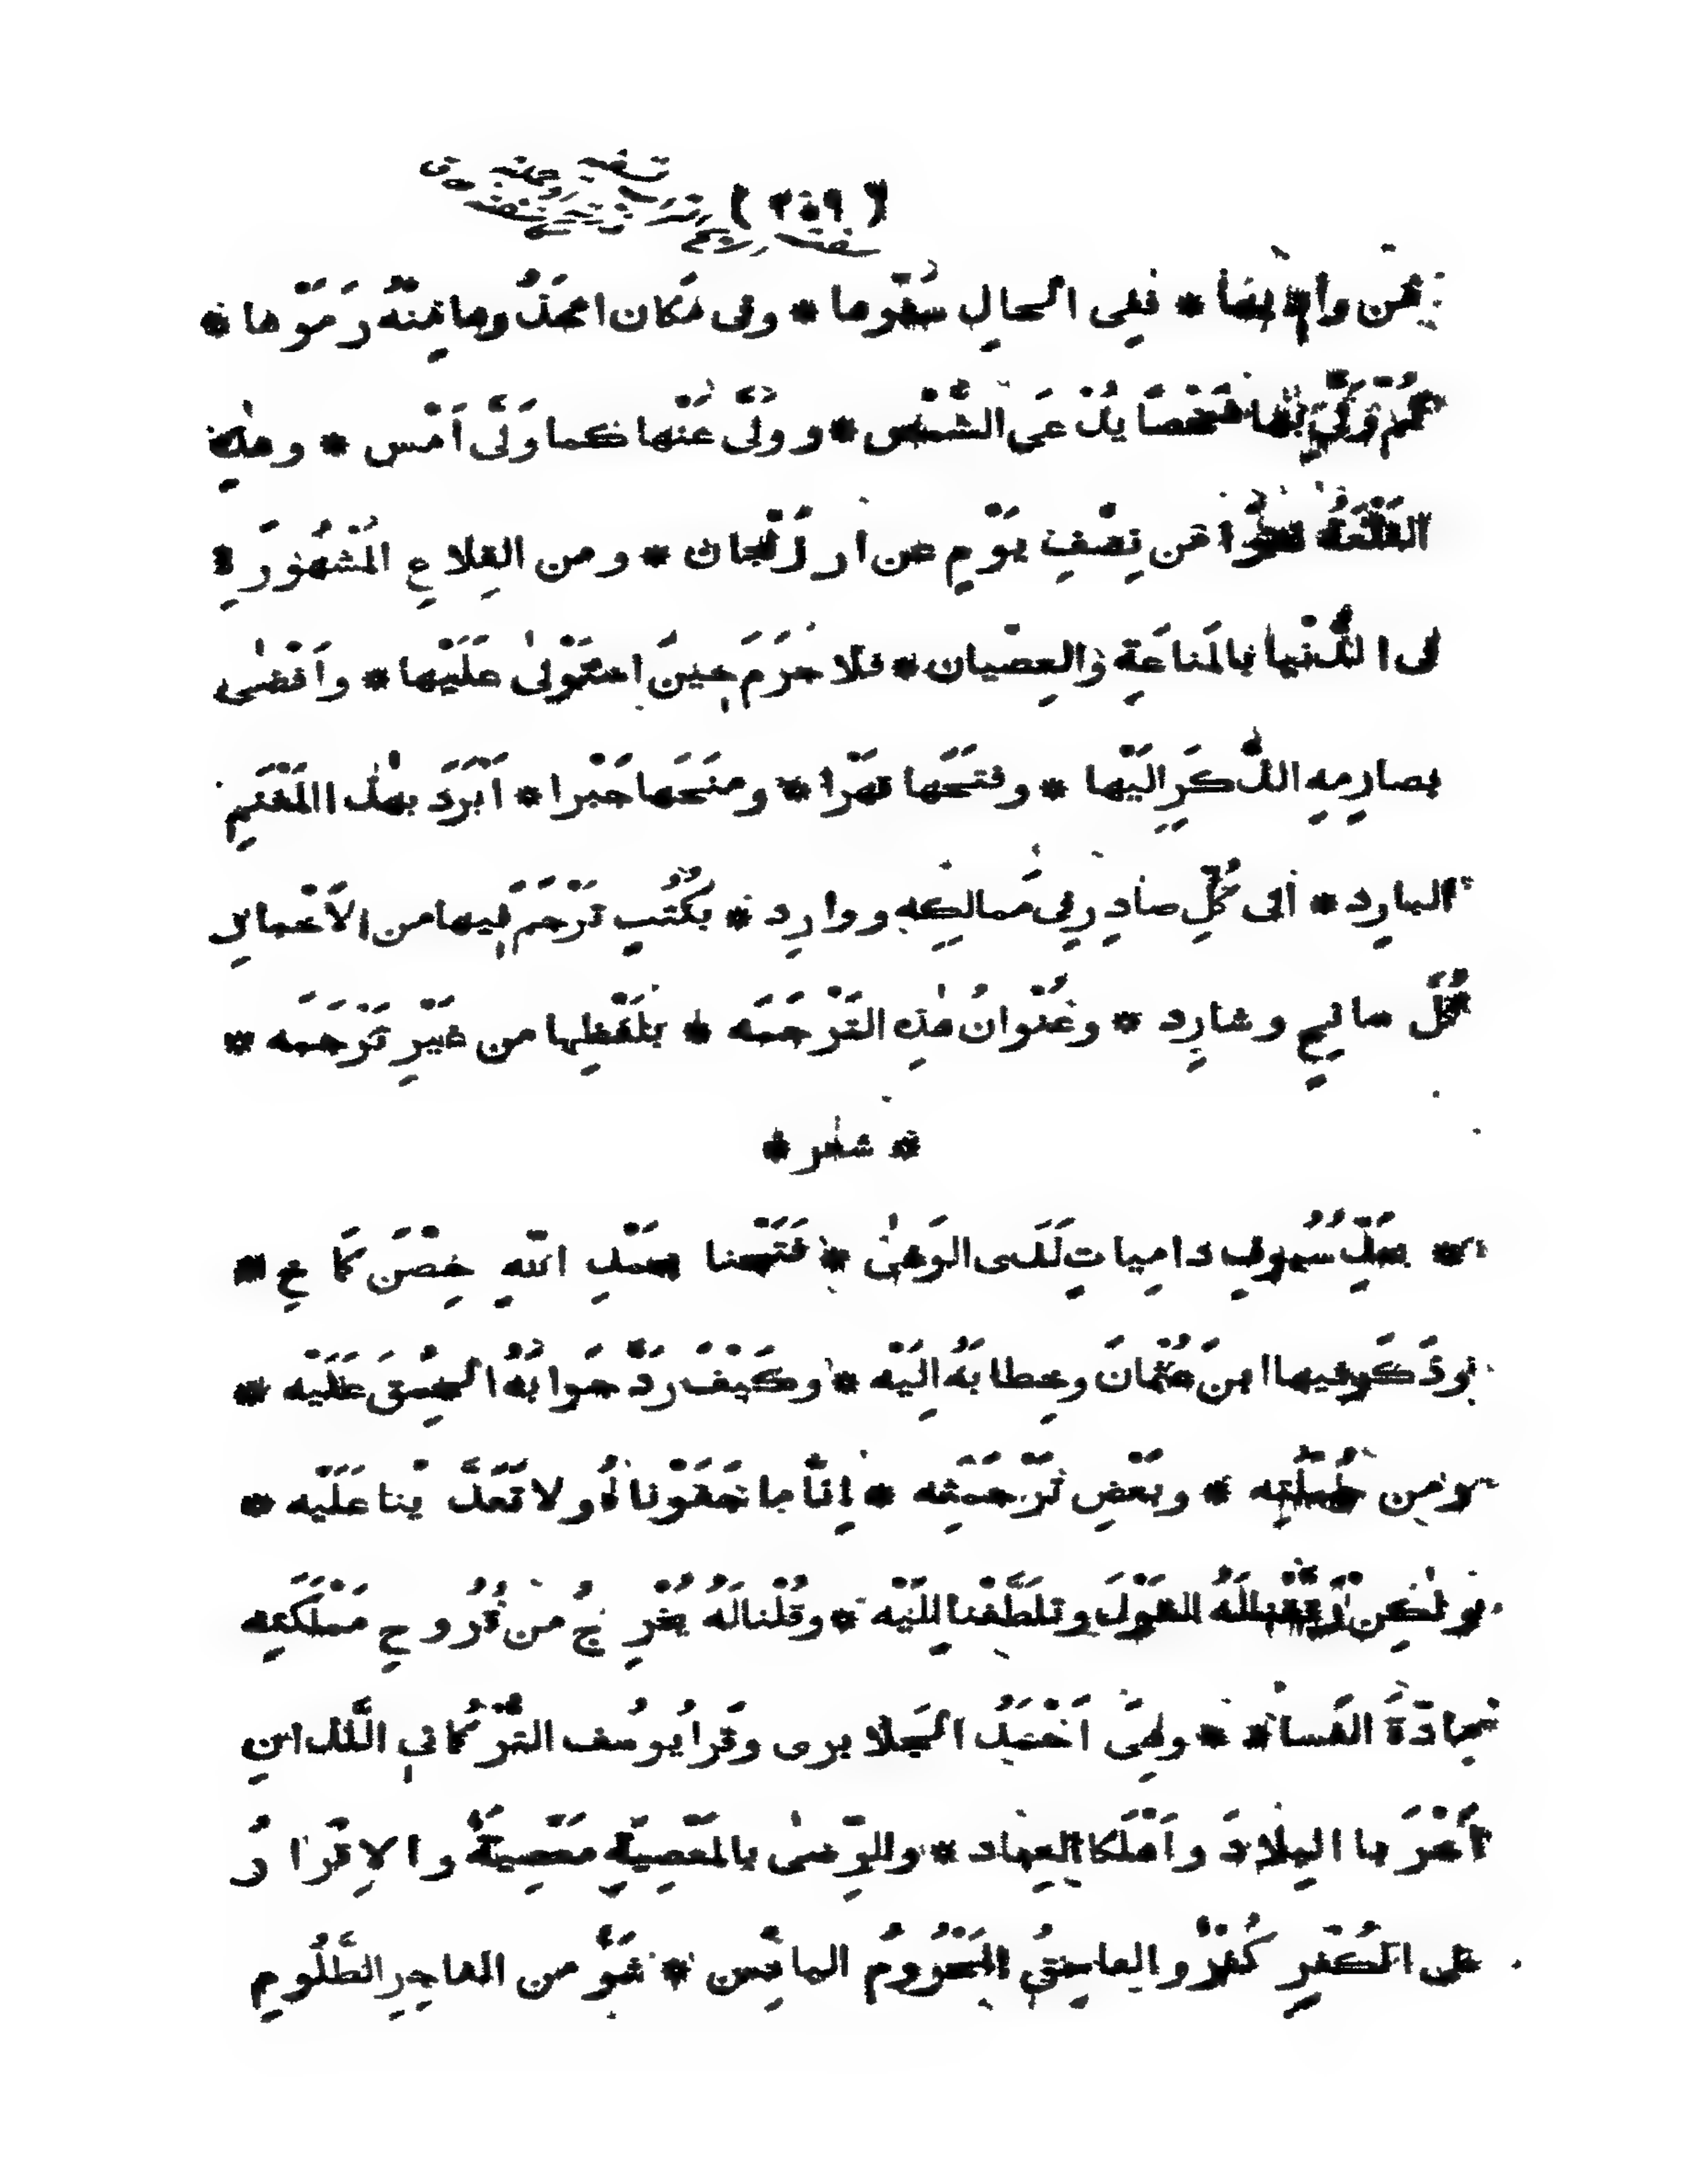 ( ٢٥٩ )
من * ففي الحالِ * وفي مَكان اخَذُوها مِنْهُ رَمَوْها *
ثُمَّ وَلَّى بها شَخْصاً يُدْعَى الشَّمْس * وَوَلَّى عَنْها كما وَلَّى اَمْس * وهذِه
القَلْعَةُ نَحْوا من نِصْفِ يَوْمٍ عن ارزَنْجان * ومن القِلاعِ المَشْهُورَةِ
في الدُّنْيا بالمَناعَةِ والعِصْيان * فلا جَرَمَ حِينَ اسْتَوْلى عَلَيْها * واَفْضى
بصارِمِهِ الذَّكَرِ اِلَيْها * وفتَحَها قَهْرا * ومنَحَها جَبْرا * اَبْرَدَ بهذا المَغْنَمِ
البارِد * الى كُلِّ صادِرٍ في مَمالِكِه ووارِد * بكُتُبٍ تَرْجَمَ فيها من الاَعْمالِ
كُلَّ سانِحٍ وشارِد * وعُنْوانُ هذِهِ التَرْجَمَه * بلَفْظِها من غَيْرِ تَرْجَمَه *
* شعر *
* بحَدِّ سُيوفٍ دامِياتٍ لَدَى الوَغى * فَتَحْنا بحَمْدِ اللهِ حِصْنَ كَماخِ *
وذَكَر فيها ابنَ عُثْمانَ وخِطابَهُ اِلَيْه * وكَيْفَ رَدَّ جَوابَهُ الحمق عَلَيْه *
ومن جُمْلَتِه * وبَعْضِ تَرْجَمَتِه * اِنَّا ما جَفَوْناهُ ولا تَعَدَّيْنا عَلَيْه *
ولكِن لَهُ القَوْلَ وتلَطَّفْنا اِلَيْه * وقُلْنا لَهُ يُخْرِجُ من قُرُوحِ مَمْلَكَتِه
مادَّةَ الفَساد * وهِيَ اَحْمَدُ الجَلايرى وقَرا يُوسُف التُّرْكُمانيّ اللَّذانِ
اَخْرَبا البِلادَ واَهْلَكا العِباد * والرِّضى بالمَعْصِيَةِ مَعْصِيَةٌ والاِقْرارُ
على الكُفْرِ كُفْرٌ والفاسِقُ المَحْرُومُ البائِس * شَرٌّ من الفاجِرِ الظَّلُومِ